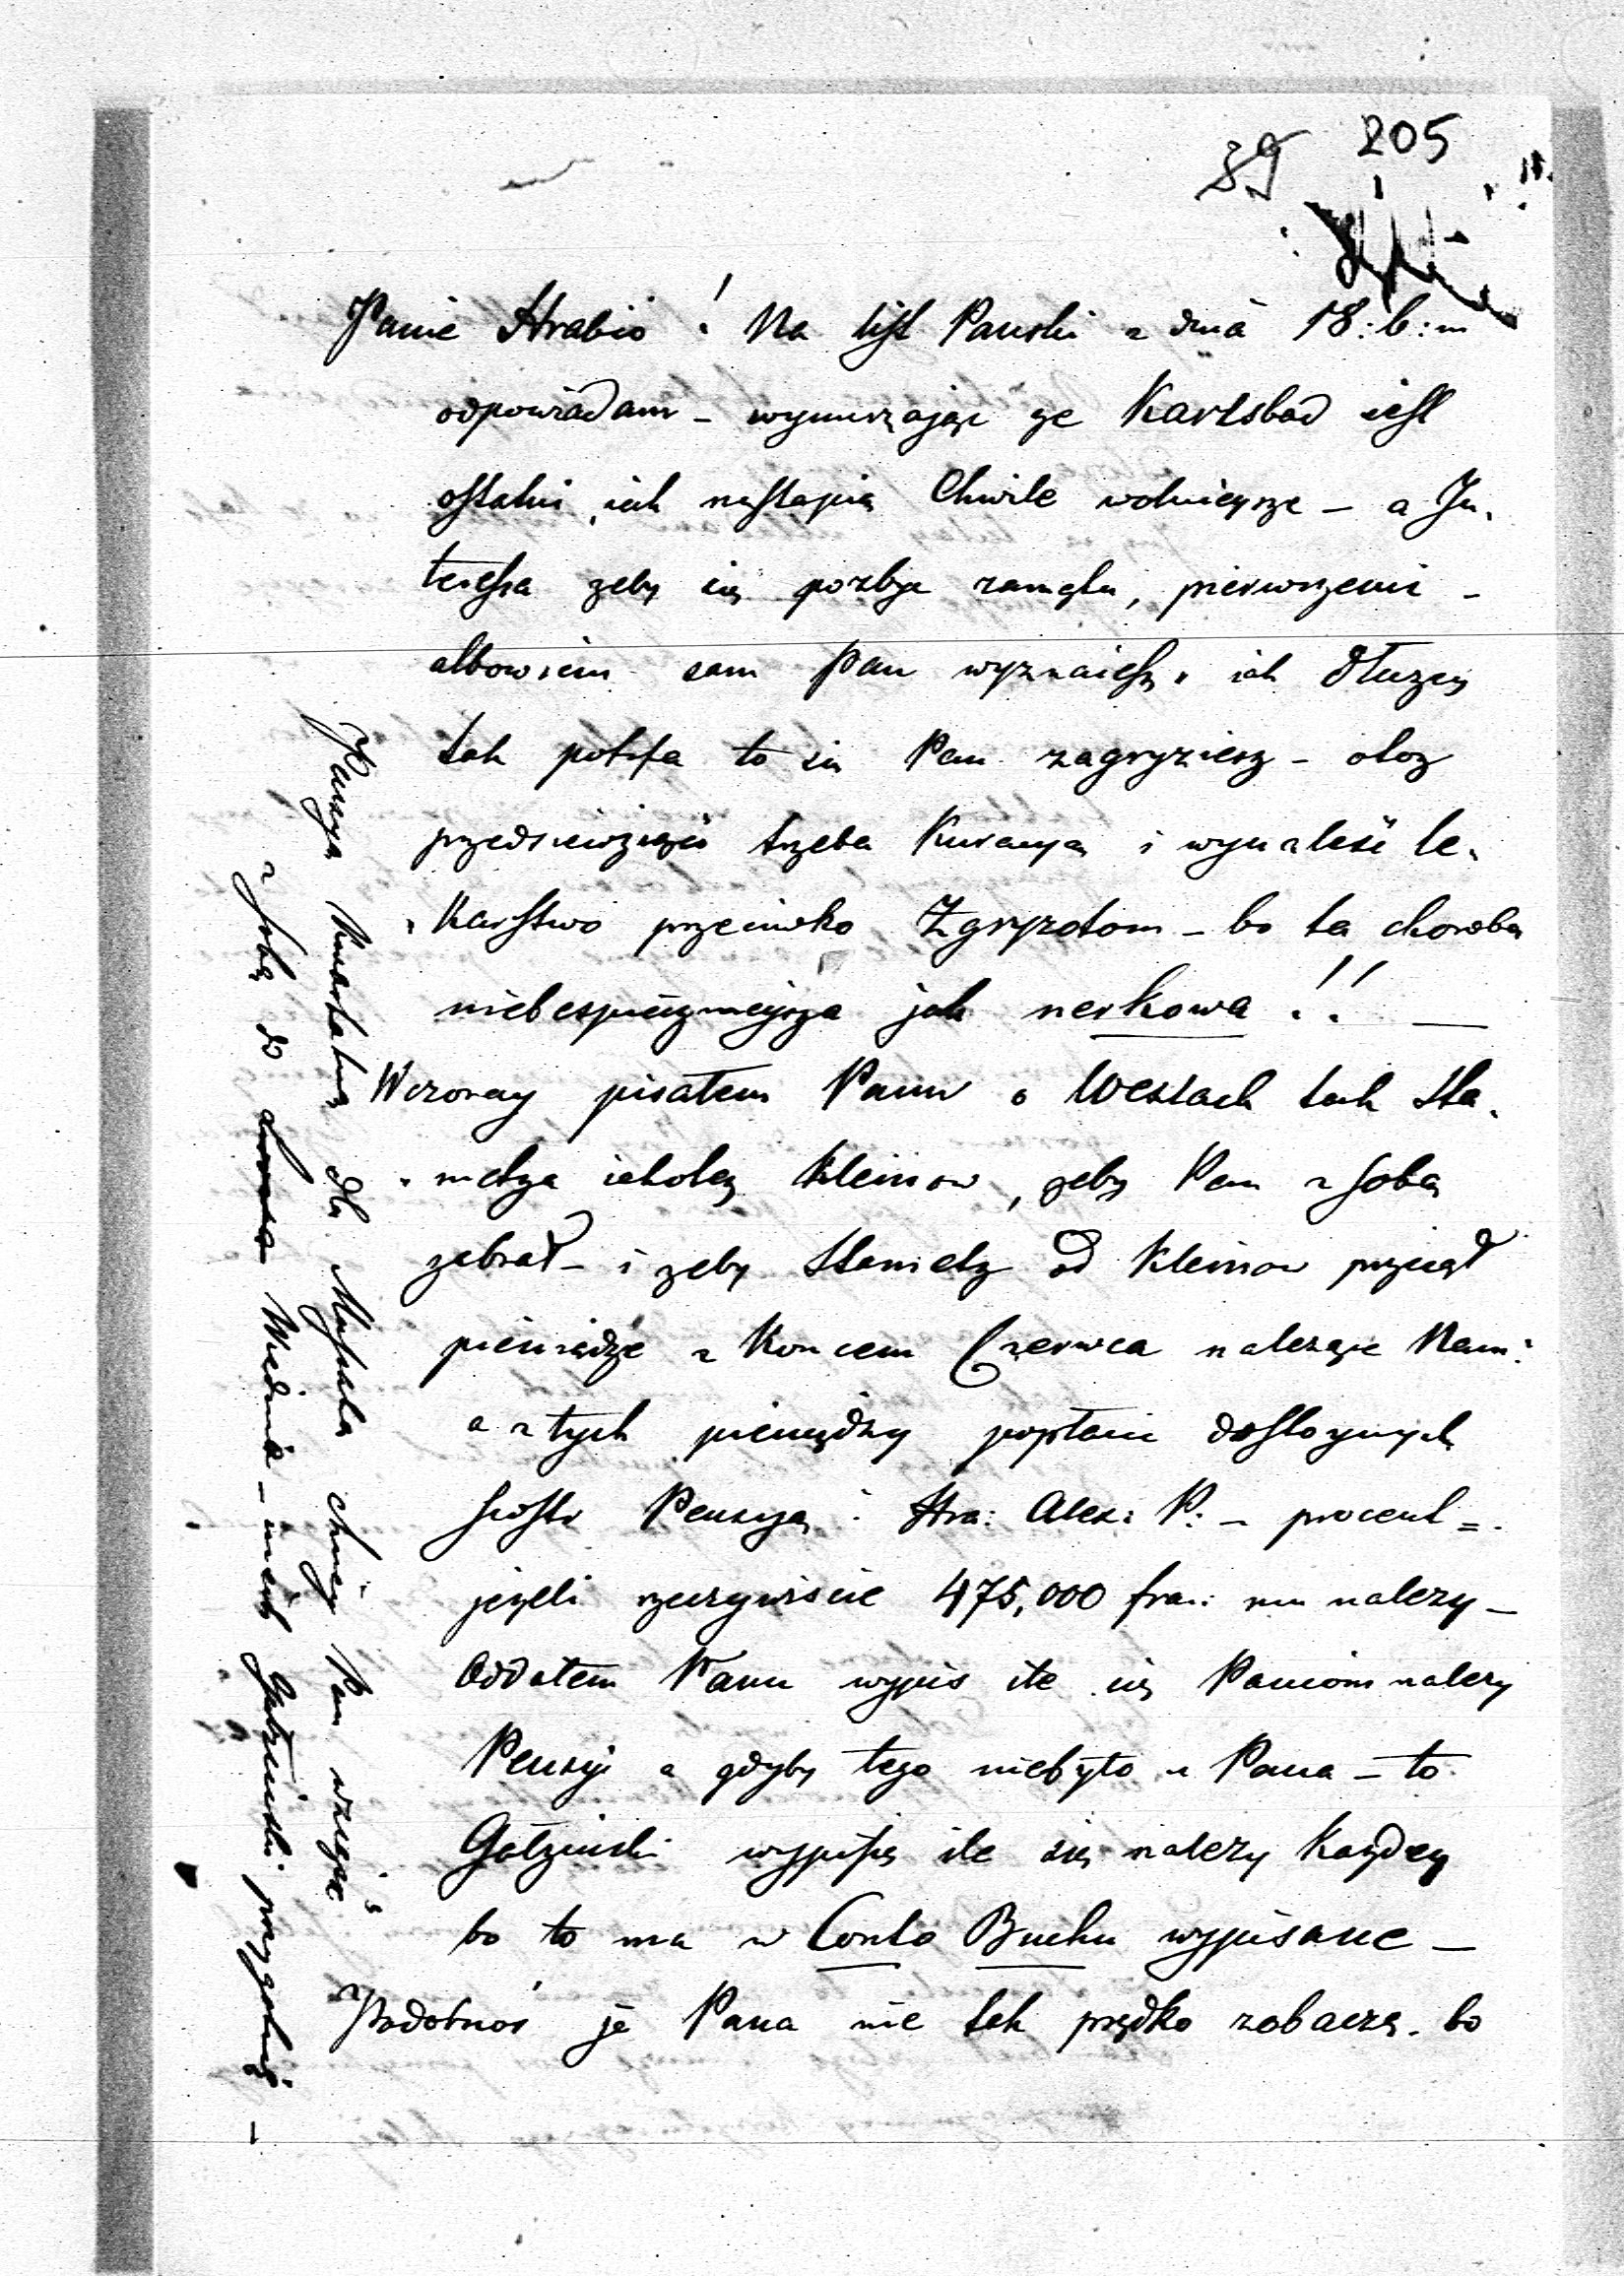 205
39
Panie Hrabio! Na list Panski z dnia 18:b:m
odpowiadam – wynurzając ze Karlsbad iest
ostatni, iak nastąpią Chwile wolnieysze – a In-
teressa zeby się pozbyc zamętu, pierwszemi –
albowiem sam Pan wyznaiesz, iak dłuzey
tak potrfa to się Pan zagryziesz – otoz
przedsiewzięść trzeba Kuracyą i wynaleść le-
karstwo przeciwko Zgryzotom – bo ta choroba
niebespiecznieysza jak nerkowa!! –
Wczoray pisałem Panu o Wexlach tak Sta-
metza iakotez Kleinow, zeby Pan z sobą
zebrał – i zeby Stametz od Kleinow przyiął
pieniądze z Koncem Czerwca nalezące Nam:
a z tych pieniędzy popłacic dostoynych
siostr Pensyą i Hra: Alex: P: – procent =
jezeli rzeczywiscie 475,000 fra: mu nalezy –
Oddałem Panu wypis ile się Paniom nalezy
Pensyi a gdyby tego niebyło u Pana – to
Gołzinski wypisze ile się nalezy kazdey
bo to ma w Conto Buchu wypisane –
Podobnoś ja Pana nie tak prędko zobaczę. bo
Pensyą kwartalną dla chciey Pan wziąść
z sobą do Wiednia – niech Gołzinski przygotuie –